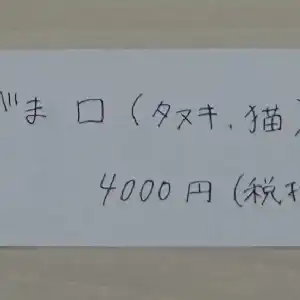 がま口(タヌキ、猫)
4000円(税